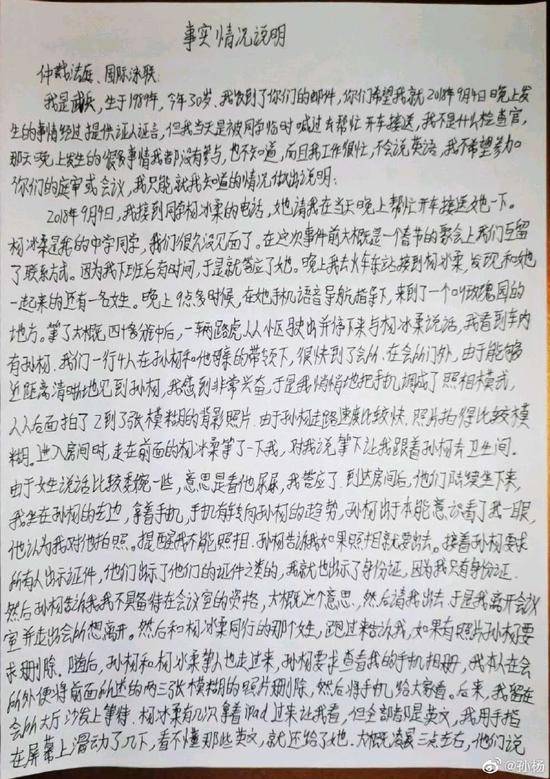 事实情况说明
仲裁法庭、国际泳联:
我是武兵,生于1989年,今年30岁,我收到了你们的邮件,你们希望我就2018年9月4日晚上发
生的事情经过提供证人证言,但我当天是被同学临时喊过去帮忙开车接送,我不是什么检查官,
那天晚上发生的很多事情我都没有参与,也不知道,而且我工作很忙,不会说英语,我不希望参加
你们的庭审或会议,我只能就我知道的情况做出说明:
2018年9月4日,我接到同学杨冰柔的电话,她请我在当天晚上帮忙开车接送她一下。
杨冰柔是我的中学同学,我们很久没见面了。在这次事件前大概是一个春节的聚会上我们互留
了联系方式。因为我下班后有时间,于是就答应了她。晚上我去火车东站接到杨冰柔,发现和她
一起来的还有一名女生。晚上9点多时候,在她手机语音导航指导下,来到了一个叫玫瑰园的
地方。等了大概四十多分钟后,一辆路虎从小区驶出并停下来与杨冰柔说话,我看到车内
有孙杨。我们一行4人在孙杨和他母亲的带领下,很快到了会所。在会所门外,由于能够
近距离清晰地见到孙杨,我感到非常兴奋,于是我悄悄地把手机调成了照相模式,
从后面拍了2到了3张模糊的背影照片。由于孙杨走路速度比较快,照片拍得比较模
糊。进入房间时,走在前面的杨冰柔等了一下我,对我说等下让我跟着孙杨去卫生间。
由于女生说话比较委婉一些,意思是看他尿尿,我答应了。到达房间后,他们陆续坐下来,
我坐在孙杨的左边,拿着手机,手机有转向孙杨的趋势,孙杨出于本能意识看了我一眼,
他认为我对他拍照。提醒我不能照相。孙杨告诉我如果照相就要出去。接着孙杨要求
所有人出示证件,他们出示了他们的证件之类的,我就也出示了身份证,因为我只有身份证.
然后孙杨告诉我我不具备待在会议室的资格,大概这个意思,然后请我出去,于是我离开会议
室并走出会所想离开。然后和杨冰柔同行的那个女生,跑过来告诉我,如果有照片孙杨要
求删除。随后,孙杨和杨冰柔等人也走过来,孙杨要求查看我的手机相册,我本人在会
所外便将前面所述的两三张模糊的照片删除,然后将手机给大家看。后来,我留在
会所大厅沙发上等待.杨冰柔有几次拿着iPad过来让我看,但全部都是英文,我用手指
在屏幕上滑动了几下,看不懂那些英文,就还给了她。大概凌晨三点左右,他们说
@孙杨